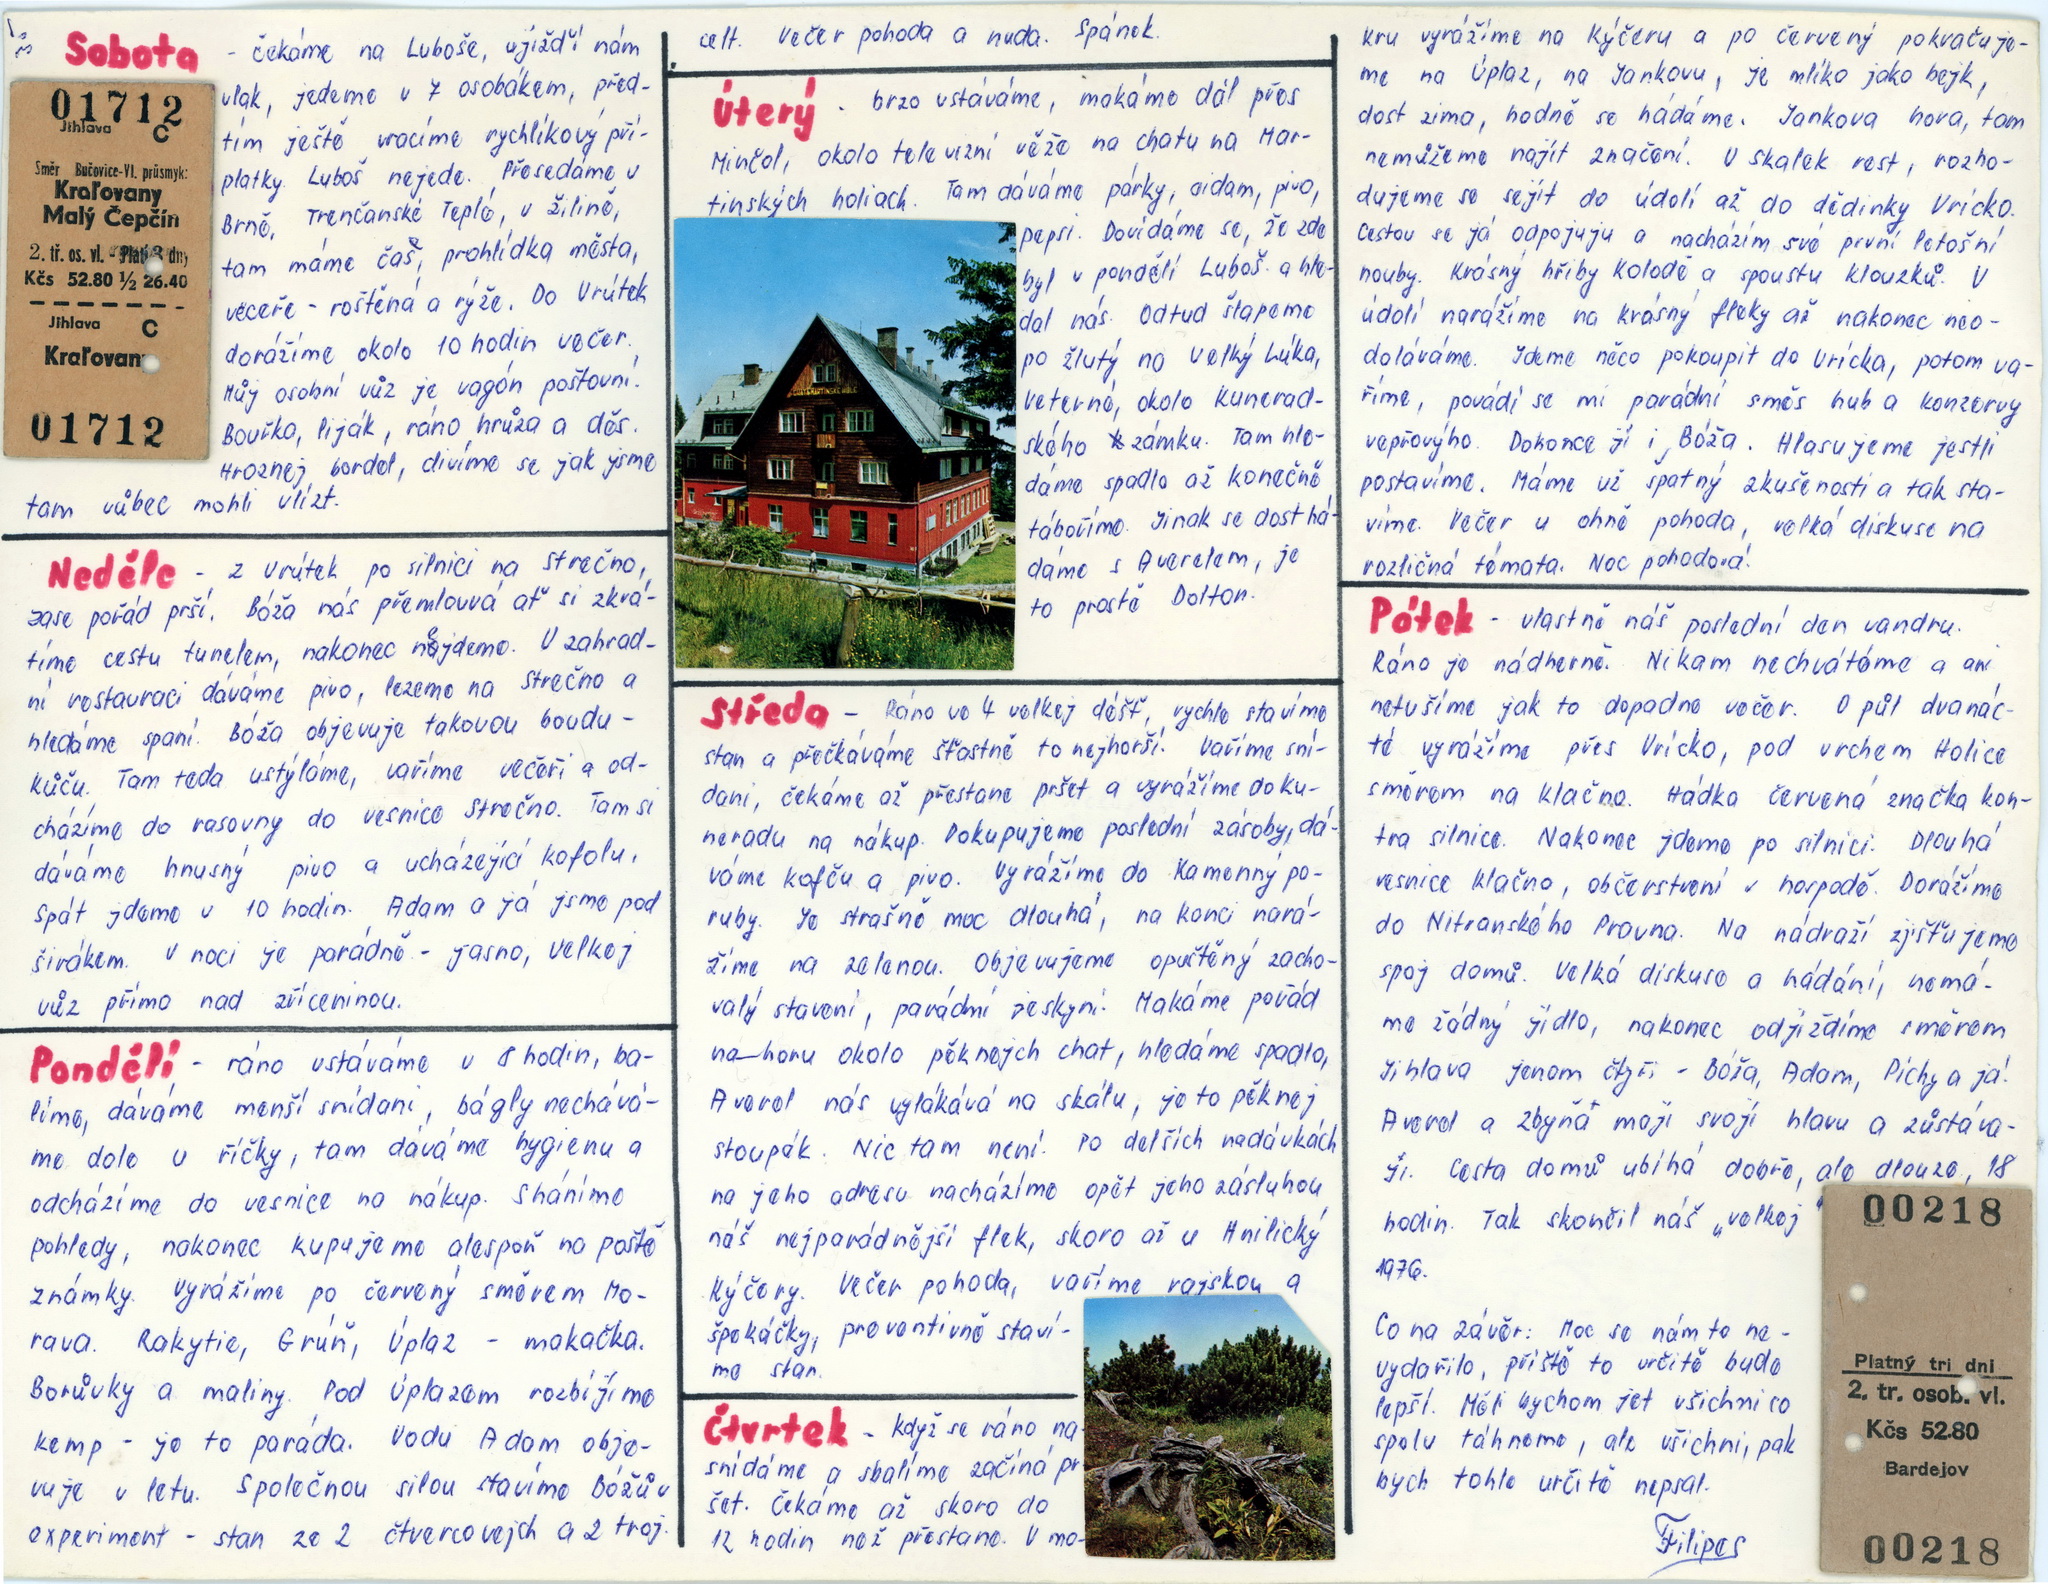 Sobota - čekáme na Luboše, ujíždí nám
vlak, jedeme v 7 osobákem, před-
tím ještě vracíme rychlíkový pří-
platky. Luboš nejede. Přesedáme v
Brně, Trenčanské Teplé, v Žilině,
tam máme čas, prohlídka města,
večeře - roštěná a rýže. Do Vrútek
dorážíme okolo 10 hodin večer.
Můj osobní vůz je vagón poštovní.
Bouřka, liják, ráno hrůza a děs.
Hroznej bordel, divíme se jak jsme
tam vůbec mohli vlízt.
01712
Jihlava C
Směr Bučovice-Vl. průsmyk:
Kraľovany
Malý Čepčín
2. tř. os. vl. Platí 3 dny
Kčs 52.80 ½ 26.40
Jihlava C
Kraľovany
01712
Neděle - z Vrútek po silnici na Strečno,
zase pořád prší. Bóža nás přemlouvá ať si zkrá-
tíme cestu tunelem, nakonec nejdeme. V zahrad-
ní restauraci dáváme pivo, lezeme na Strečno a
hledáme spaní. Bóža objevuje takovou boudu -
kůču. Tam teda ustýláme, vaříme večeři a od-
cházíme do rasovny do vesnice Strečno. Tam si
dáváme hnusný pivo a ucházející kofolu.
Spát jdeme v 10 hodin. Adam a já jsme pod
širákem. V noci je parádně - jasno, Velkej
vůz přímo nad zříceninou.
Pondělí - ráno vstáváme v 8 hodin, ba-
líme, dáváme menší snídani, bágly nechává-
me dole u říčky, tam dáváme hygienu a
odcházíme do vesnice na nákup. Sháníme
pohledy, nakonec kupujeme alespoň na poště
známky. Vyrážíme po červený směrem Mo-
rava. Rakytie, Grúň, Úplaz - makačka.
Borůvky a maliny. Pod Úplazem rozbíjíme
kemp - je to paráda. Vodu Adam obje-
vuje v letu. Společnou silou stavíme Bóžův
experiment - stan ze 2 čtvercovejch a 2 troj.
celt. Večer pohoda a nuda. Spánek.
Úterý - brzo vstáváme, makáme dál přes
Minčol, okolo televizní věže na chatu na Mar-
tinských holiach. Tam dáváme párky, eidam, pivo,
pepsi. Dovídáme se, že zde
byl v pondělí Luboš a hle-
dal nás. Odtud šlapeme
po žlutý na Velký Lúka,
Veterné, okolo Kunerad-
ského zámku. Tam hle-
dáme spadlo až konečně
táboříme. Jinak se dost há-
dáme s Averelem, je
to prostě Dolton.
Středa - Ráno ve 4 velkej déšť, rychle stavíme
stan a přečkáváme šťastně to nejhorší. Vaříme sní-
dani, čekáme až přestane pršet a vyrážíme do Ku-
neradu na nákup. Dokupujeme poslední zásoby, dá-
váme kofču a pivo. Vyrážíme do Kamenný po-
ruby. Je strašně moc dlouhá, na konci nará-
žíme na zelenou. Objevujeme opuštěný zacho-
valý stavení, parádní jeskyni. Makáme pořád
na horu okolo pěknejch chat, hledáme spadlo,
Averel nás vylákává na skálu, je to pěknej
stoupák. Nic tam není. Po delších nadávkách
na jeho adresu nacházíme opět jeho zásluhou
náš nejparádnější flek, skoro až u Hnilický
Kýčery. Večer pohoda, vaříme rajskou a
špekáčky, preventivně staví-
me stan.
Čtvrtek - Když se ráno na-
snídáme a sbalíme začíná pr
šet. Čekáme až skoro do
12 hodin než přestane. V mo-
kru vyrážíme na Kýčeru a po červený pokračuje-
me na Úplaz, na Jankovu, je mlíko jako bejk,
dost zima, hodně se hádáme. Jankova hora, tam
nemůžeme najít značení. U skalek rest, rozho-
dujeme se sejít do údolí až do dědinky Vricko.
Cestou se já odpojuju a nacházím své první letošní
houby. Krásný hřiby Koloděj a spoustu klouzků. V
údolí narážíme na krásný fleky až nakonec neo-
doláváme. Jdeme něco pokoupit do Vrícka, potom va-
říme, povádí se mi parádní směs hub a konzervy
vepřovýho. Dokonce jí i Bóža. Hlasujeme jestli
postavíme. Máme už špatný zkušenosti a tak sta-
víme. Večer u ohně pohoda, velká diskuse na
rozličná témata. Noc pohodová!
Pátek - vlastně náš poslední den vandru.
Ráno je nádherně. Nikam nechvátáme a ani
netušíme jak to dopadne večer. O půl dvanác-
té vyrážíme přes Vricko, pod vrchem Holice
směrem na Klačno. Hádka červená značka kon-
tra silnice. Nakonec jdeme po silnici. Dlouhá
vesnice Klačno, občerstvení v hospodě. Dorážíme
do Nitranského Pravna. Na nádraží zjišťujeme
spoj domů. Velká diskuse a hádání, nemá-
me žádný jídlo, nakonec odjíždíme směrem
Jihlava jenom čtyři - Bóža, Adam, Píchy a já.
Averel a Zbyňa mají svojí hlavu a zůstáva-
jí. Cesta domů ubíhá dobře, ale dlouze, 18
hodin. Tak skončil náš „velkej"
1976.
Co na závěr: Moc se nám to ne-
vydařilo, příště to určitě bude
lepší. Měli bychom jet všichni co
spolu táhneme, ale všichni, pak
bych tohle určitě nepsal.
Filipes
00218
Platný tri dni
2. tr. osob. vl.
Kčs 52.80
Bardejov
00218